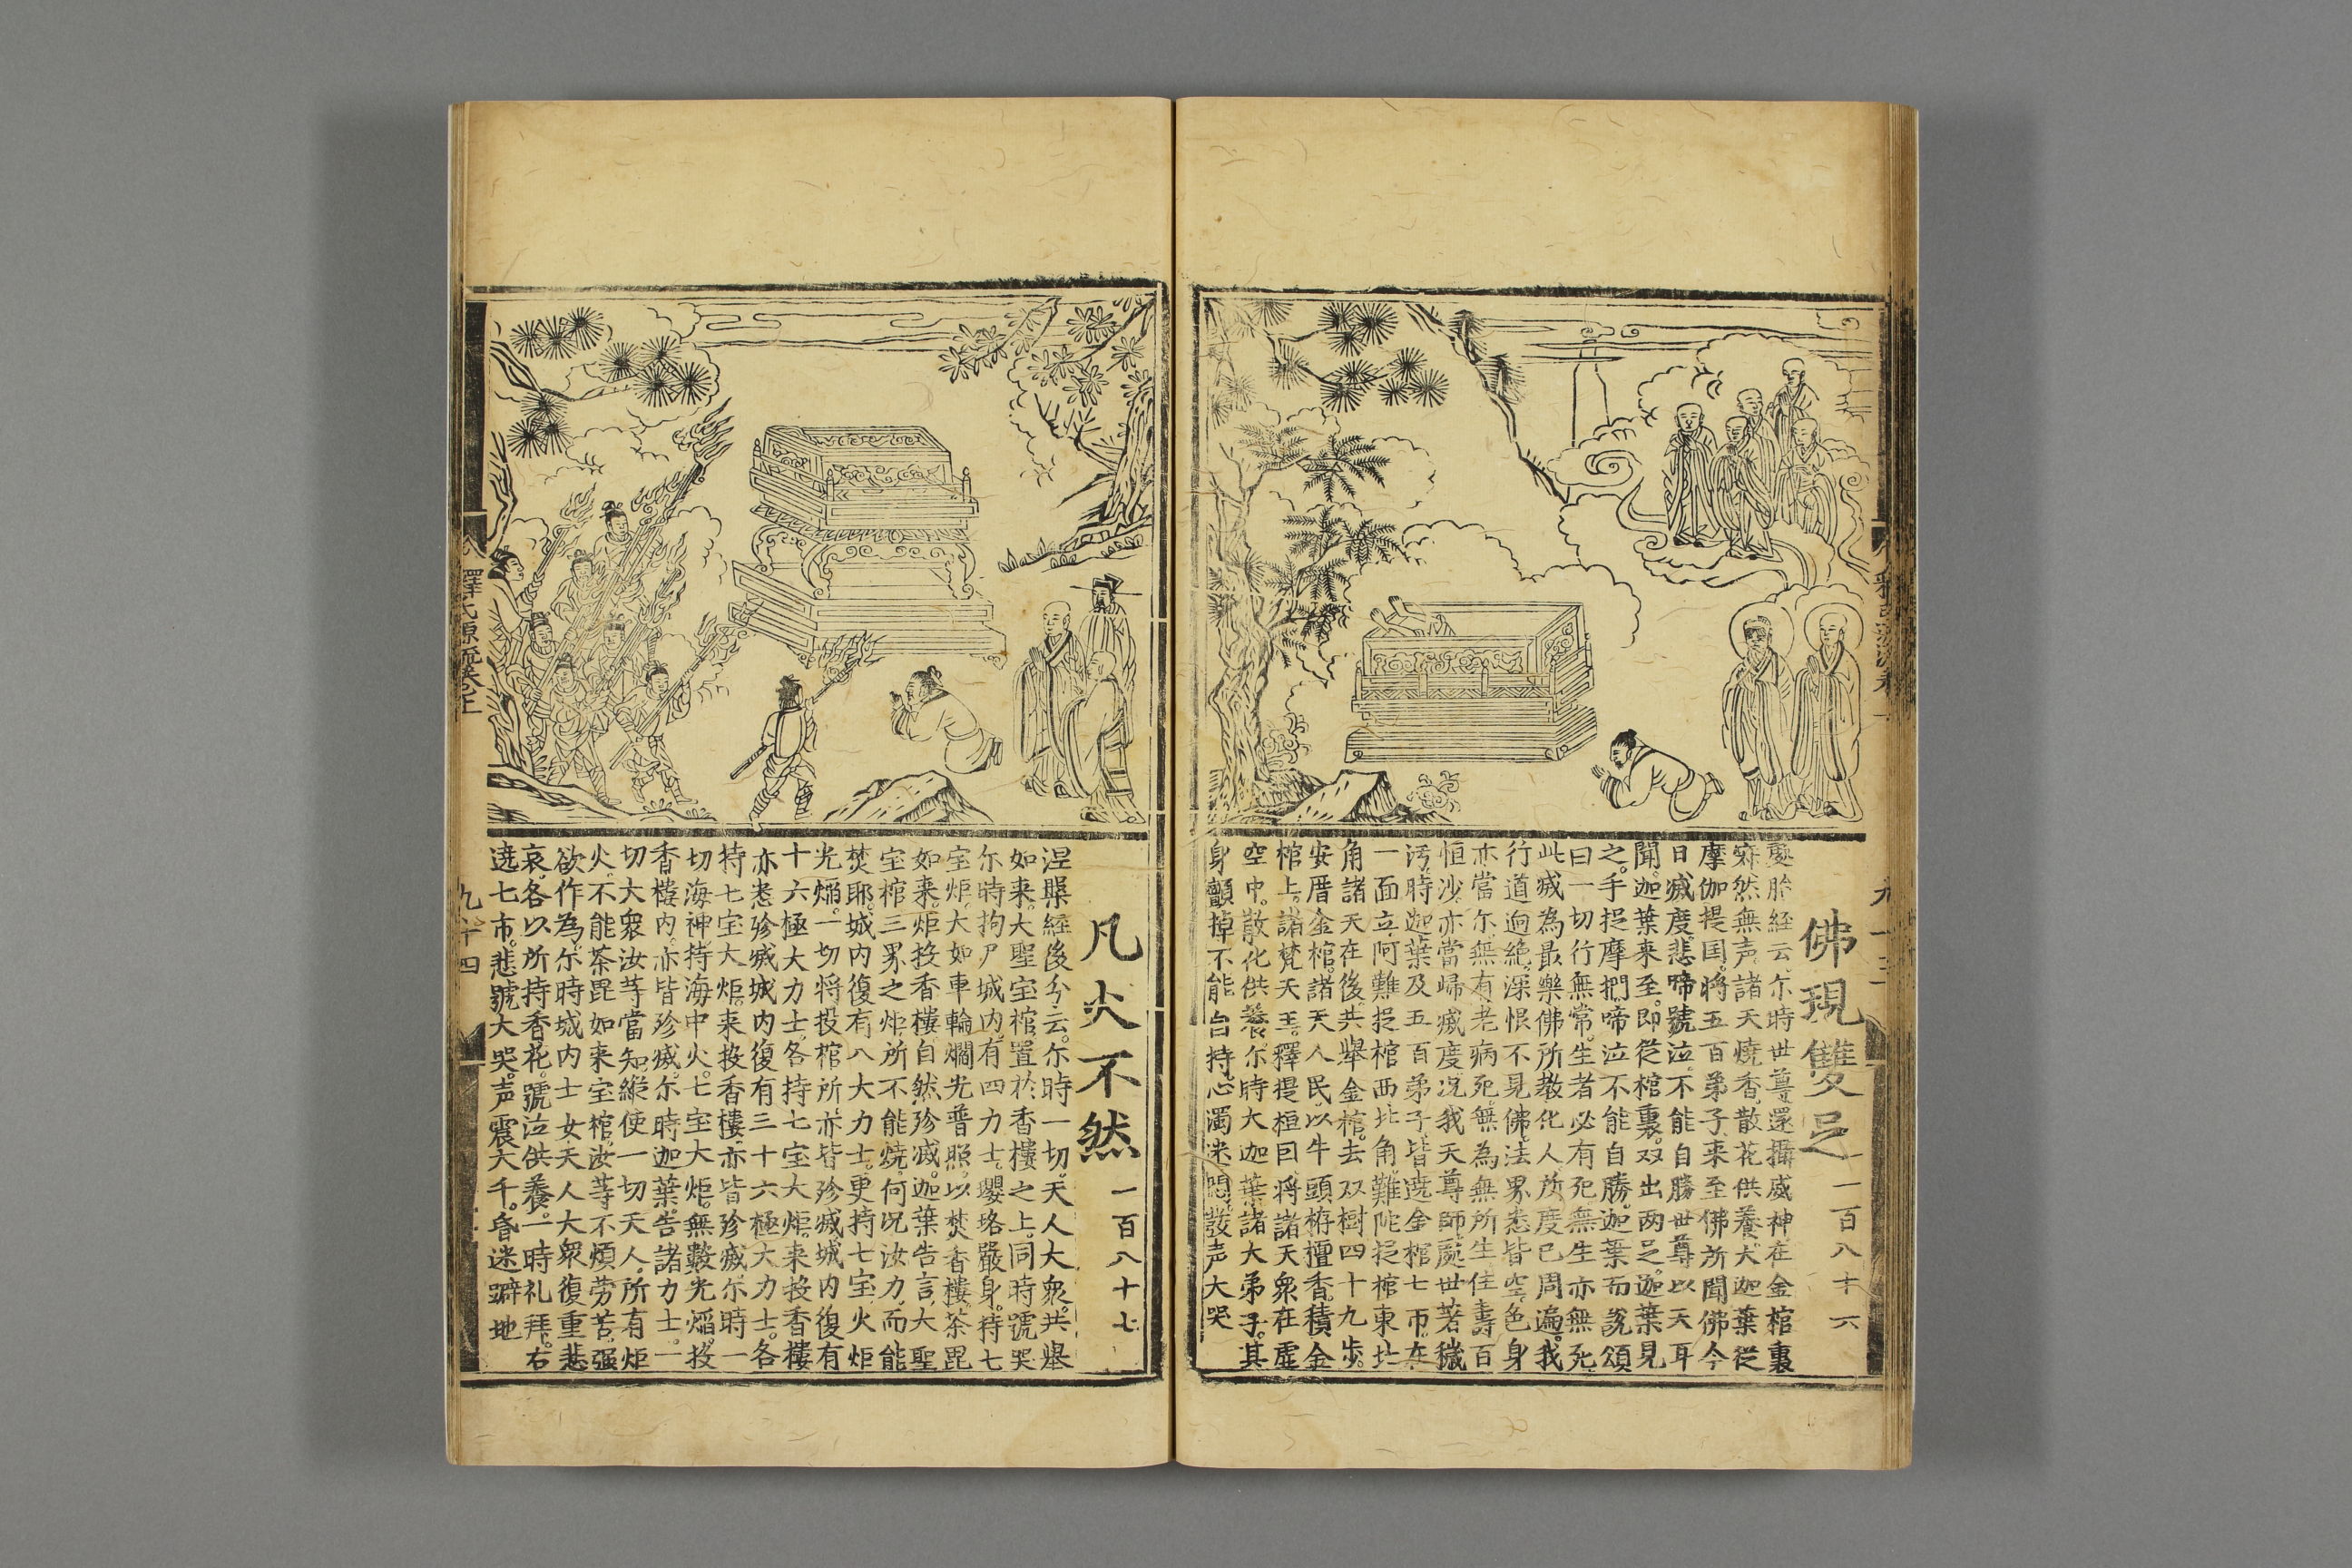 佛現雙足
一百八十六
處胎經云。尔時世尊還攝威神在金棺裏
寂然無声。諸天燒香散花供養大迦葉從
摩伽提国。將五百弟子。来至佛所聞佛今
日滅度。悲啼號泣。不能自勝世尊以天耳
聞。迦葉来至。即從棺裏。双出两足。迦葉見
之。手捉摩捫。啼泣不能自勝。迦葉而說頌
曰一切行無常。生者必有死無生亦無死
此滅為最樂佛所教化人所度已周遍。我
行道迥絶。深恨不見佛。法界悉皆空。色身
亦當尔。無有老病死。無為無所生住壽百
恒沙。亦當歸滅度况我天尊師。處世著穢
污。時迦葉及五百弟子皆遶金棺七帀。在
一面立。阿難捉棺西北角。難陀捉棺東北
角諸天在後。共舉金棺。去双樹四十九步。
安厝金棺。諸天人民。以牛頭栴檀香。積金
棺上。諸梵天王。釋提桓因。将諸天衆在虛
空中。散化供養。尔時大迦葉諸大弟子。其
身顫掉不能自持。心濁迷悶。發声大哭
凡火不然
一百八十七
涅槃經後分云。尔時一切。天人大衆。共舉
如来。大聖宝棺。置於香樓之上。同時號哭
尔時拘尸城内。有四力士。瓔珞嚴身。持七
宝炬。大如車輪爛光普照。以焚香樓。茶毘
如来。炬投香樓。自然殄滅。迦葉告言。大聖
宝棺三界之炬。所不能燒。何况汝力而能
焚耶。城内復有八大力士。更持七宝火炬
光焰。一切将投棺所亦皆殄滅城内復有
十六極大力士。各持七宝大炬。来投香樓
亦悉殄滅城内復有三十六極大力士。各
持七宝大炬。来投香樓亦皆殄滅尔時一
切海神。持海中火。七宝大炬。無數光焰。投
香樓内。亦皆殄滅。尔時迦葉。告諸力士。一
切大衆汝䓁當知。縱使一切天人。所有炬
火。不能茶毘如来宝棺。汝䓁不煩劳苦。强
欲作為。尔時城内士女天人大衆復重悲
哀。各以所持香花。號泣供養。一時礼拜。右
遶七帀。悲號大哭。声震大千。昏迷躃地
釋氏源流卷上
九十四